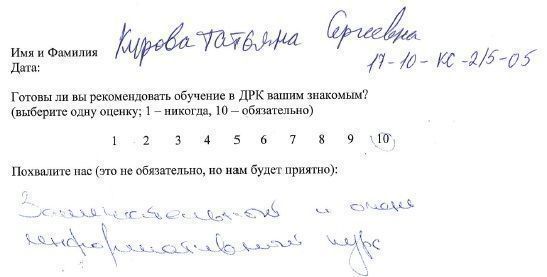 Имя и Фамилия Кирова Татьяна Сергеевна
Дата: 17-10-КС-215-05
Готовы ли вы рекомендовать обучение в ДРК вашим знакомым?
(выберите одну оценку; 1 – никогда, 10 – обязательно)
1 2 3 4 5 6 7 8 9 10
Похвалите нас (это не обязательно, но нам будет приятно):
Замечательный и очень
информативный курс